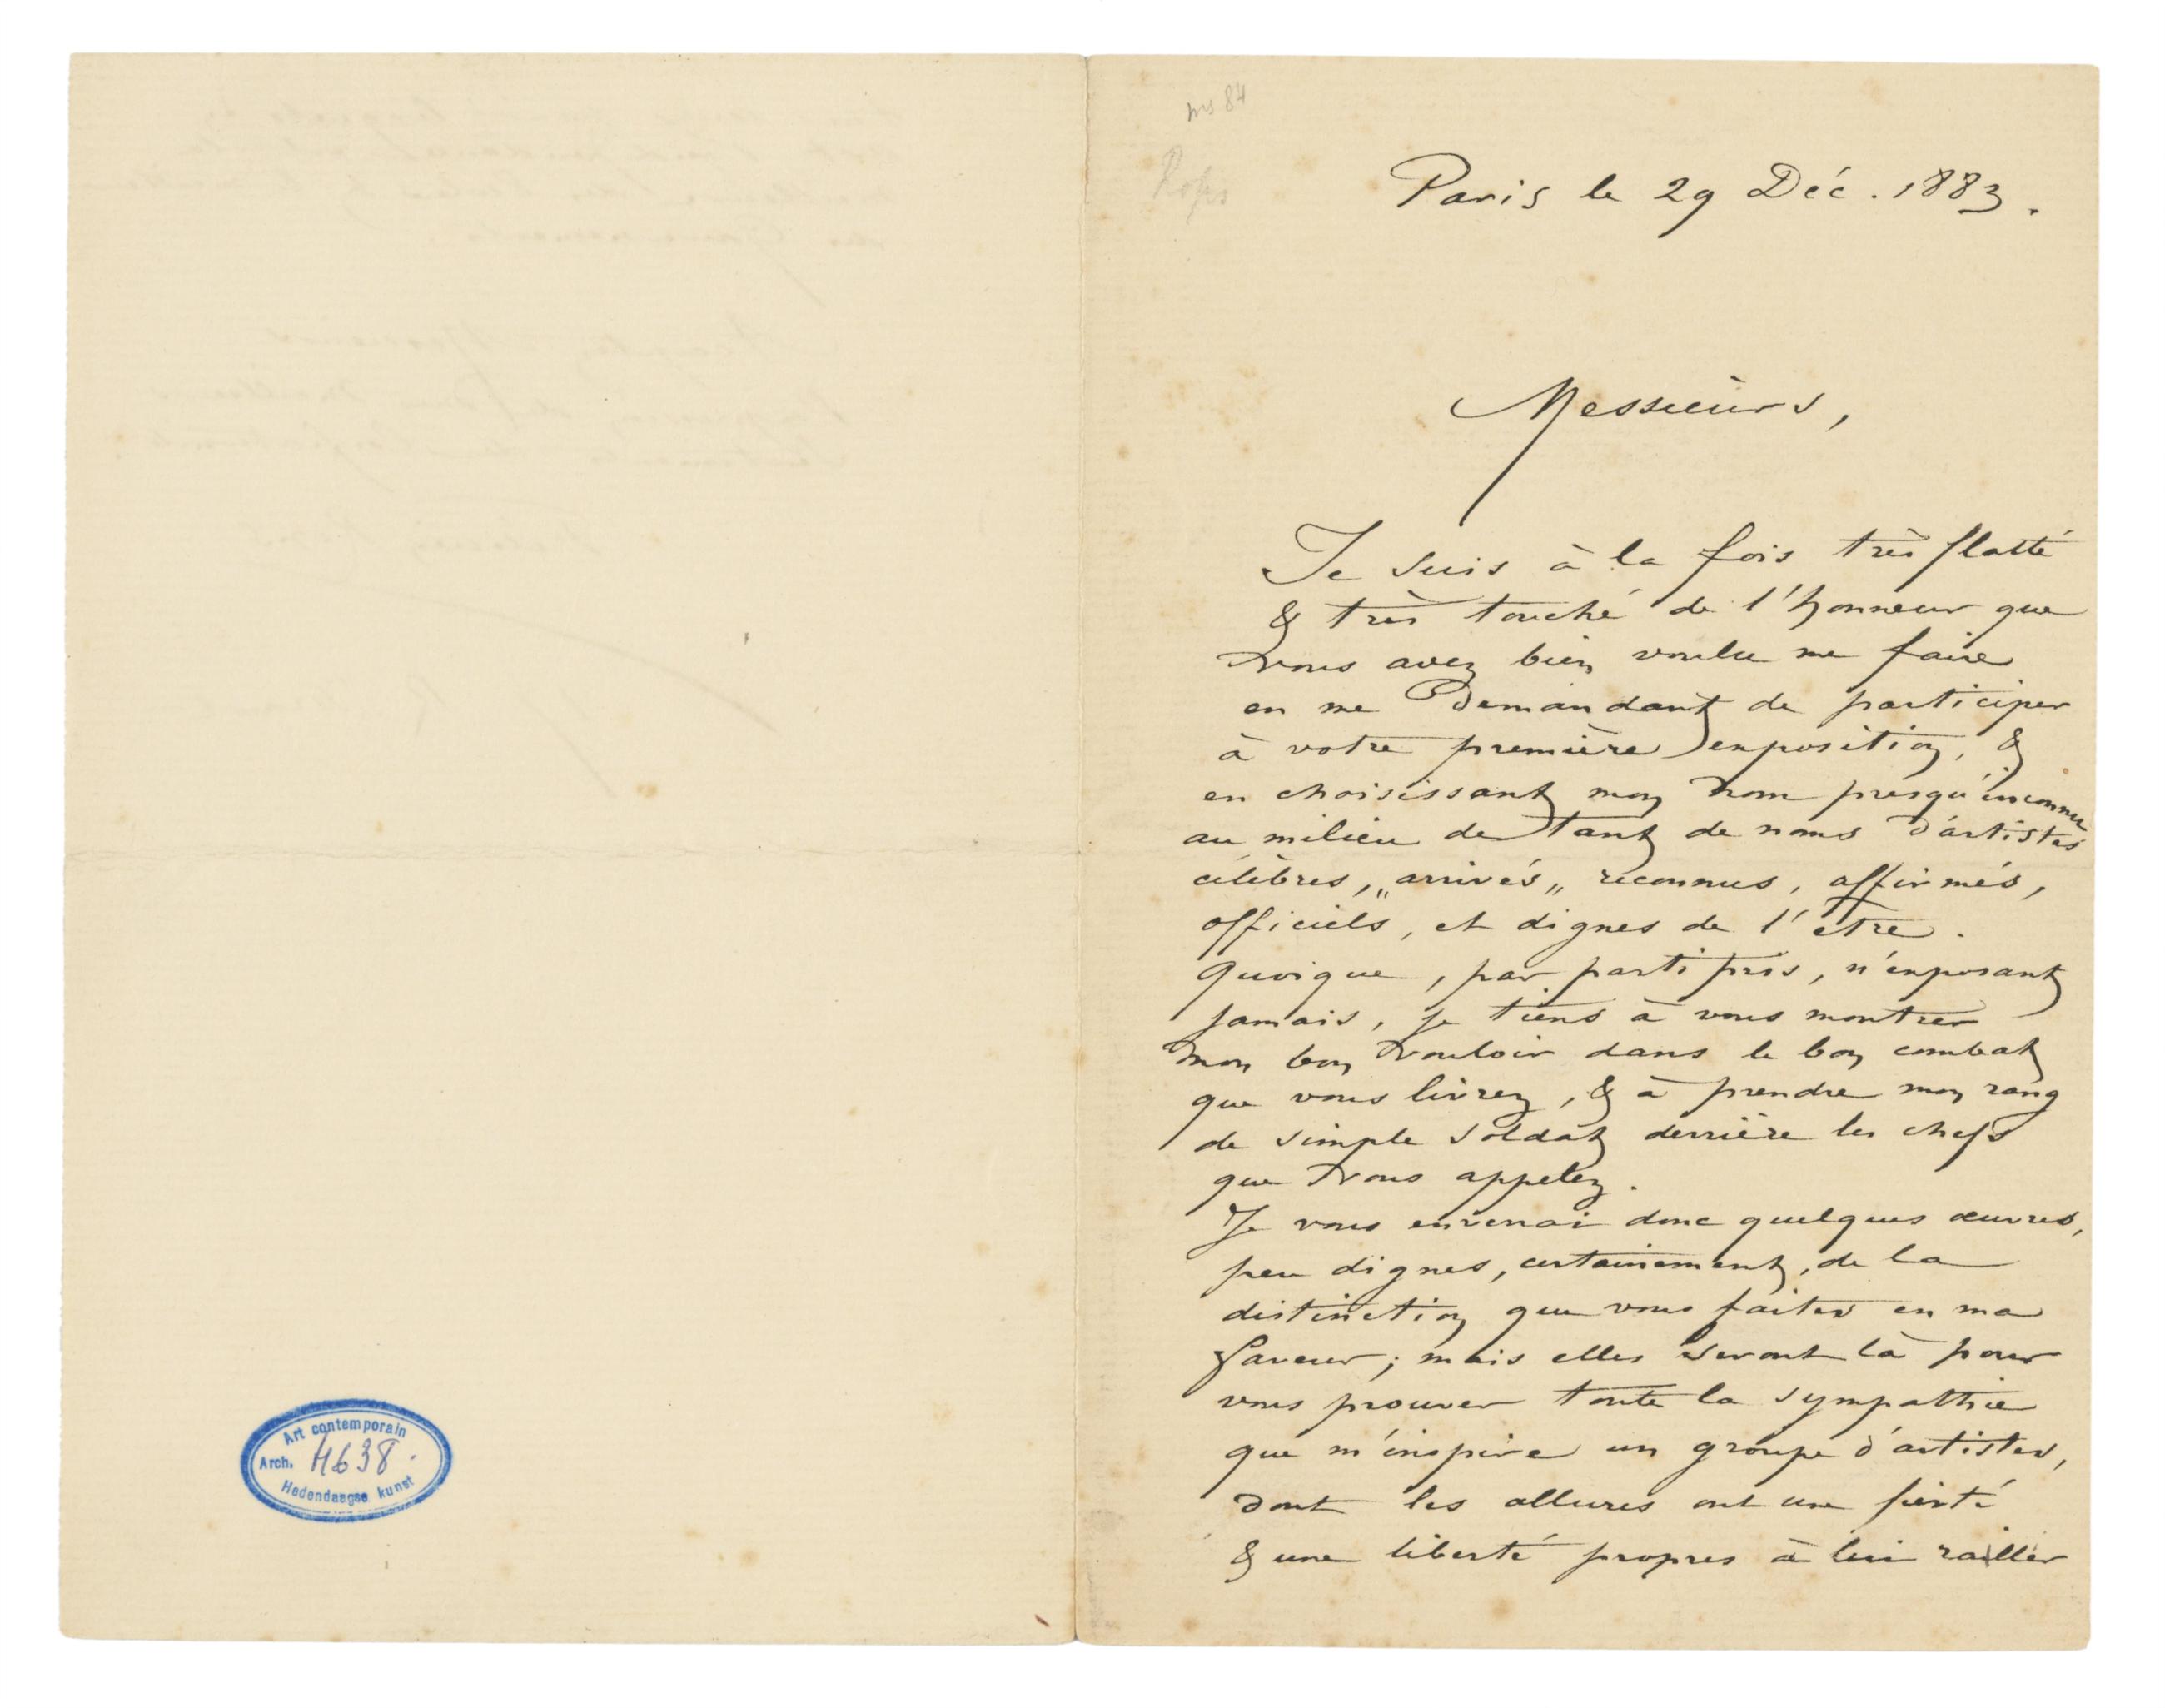 Art contemporain
Arch. 4638.
Hedendaagse kunst
ms 84
Rops
Paris le 29 Déc. 1883.
Messieurs,
Je suis à la fois très flatté
& très touché de l'honneur que
vous avez bien voulu me faire
en me demandant de participer
à votre première exposition, &
en choisissant mon nom presqu'inconnu
au milieu de tant de noms d'artistes
célèbres, „arrivés„ reconnus, affirmés,
officiels, et dignes de l'etre.
Quoique, par parti pris, n'exposant
jamais, je tiens à vous montrer
mon bon vouloir dans le bon combat
que vous livrez, & à prendre mon rang
de simple soldat derrière les chefs
que vous appelez.
Je vous enverrai donc quelques œuvres,
peu dignes, certainement, de la
distinction que vous faites en ma
faveur; mais elles seront là pour
vous prouver toute la sympathie
que m'inspire un groupe d'artistes,
dont les allures ont une fierté
& une liberté propres à lui railler